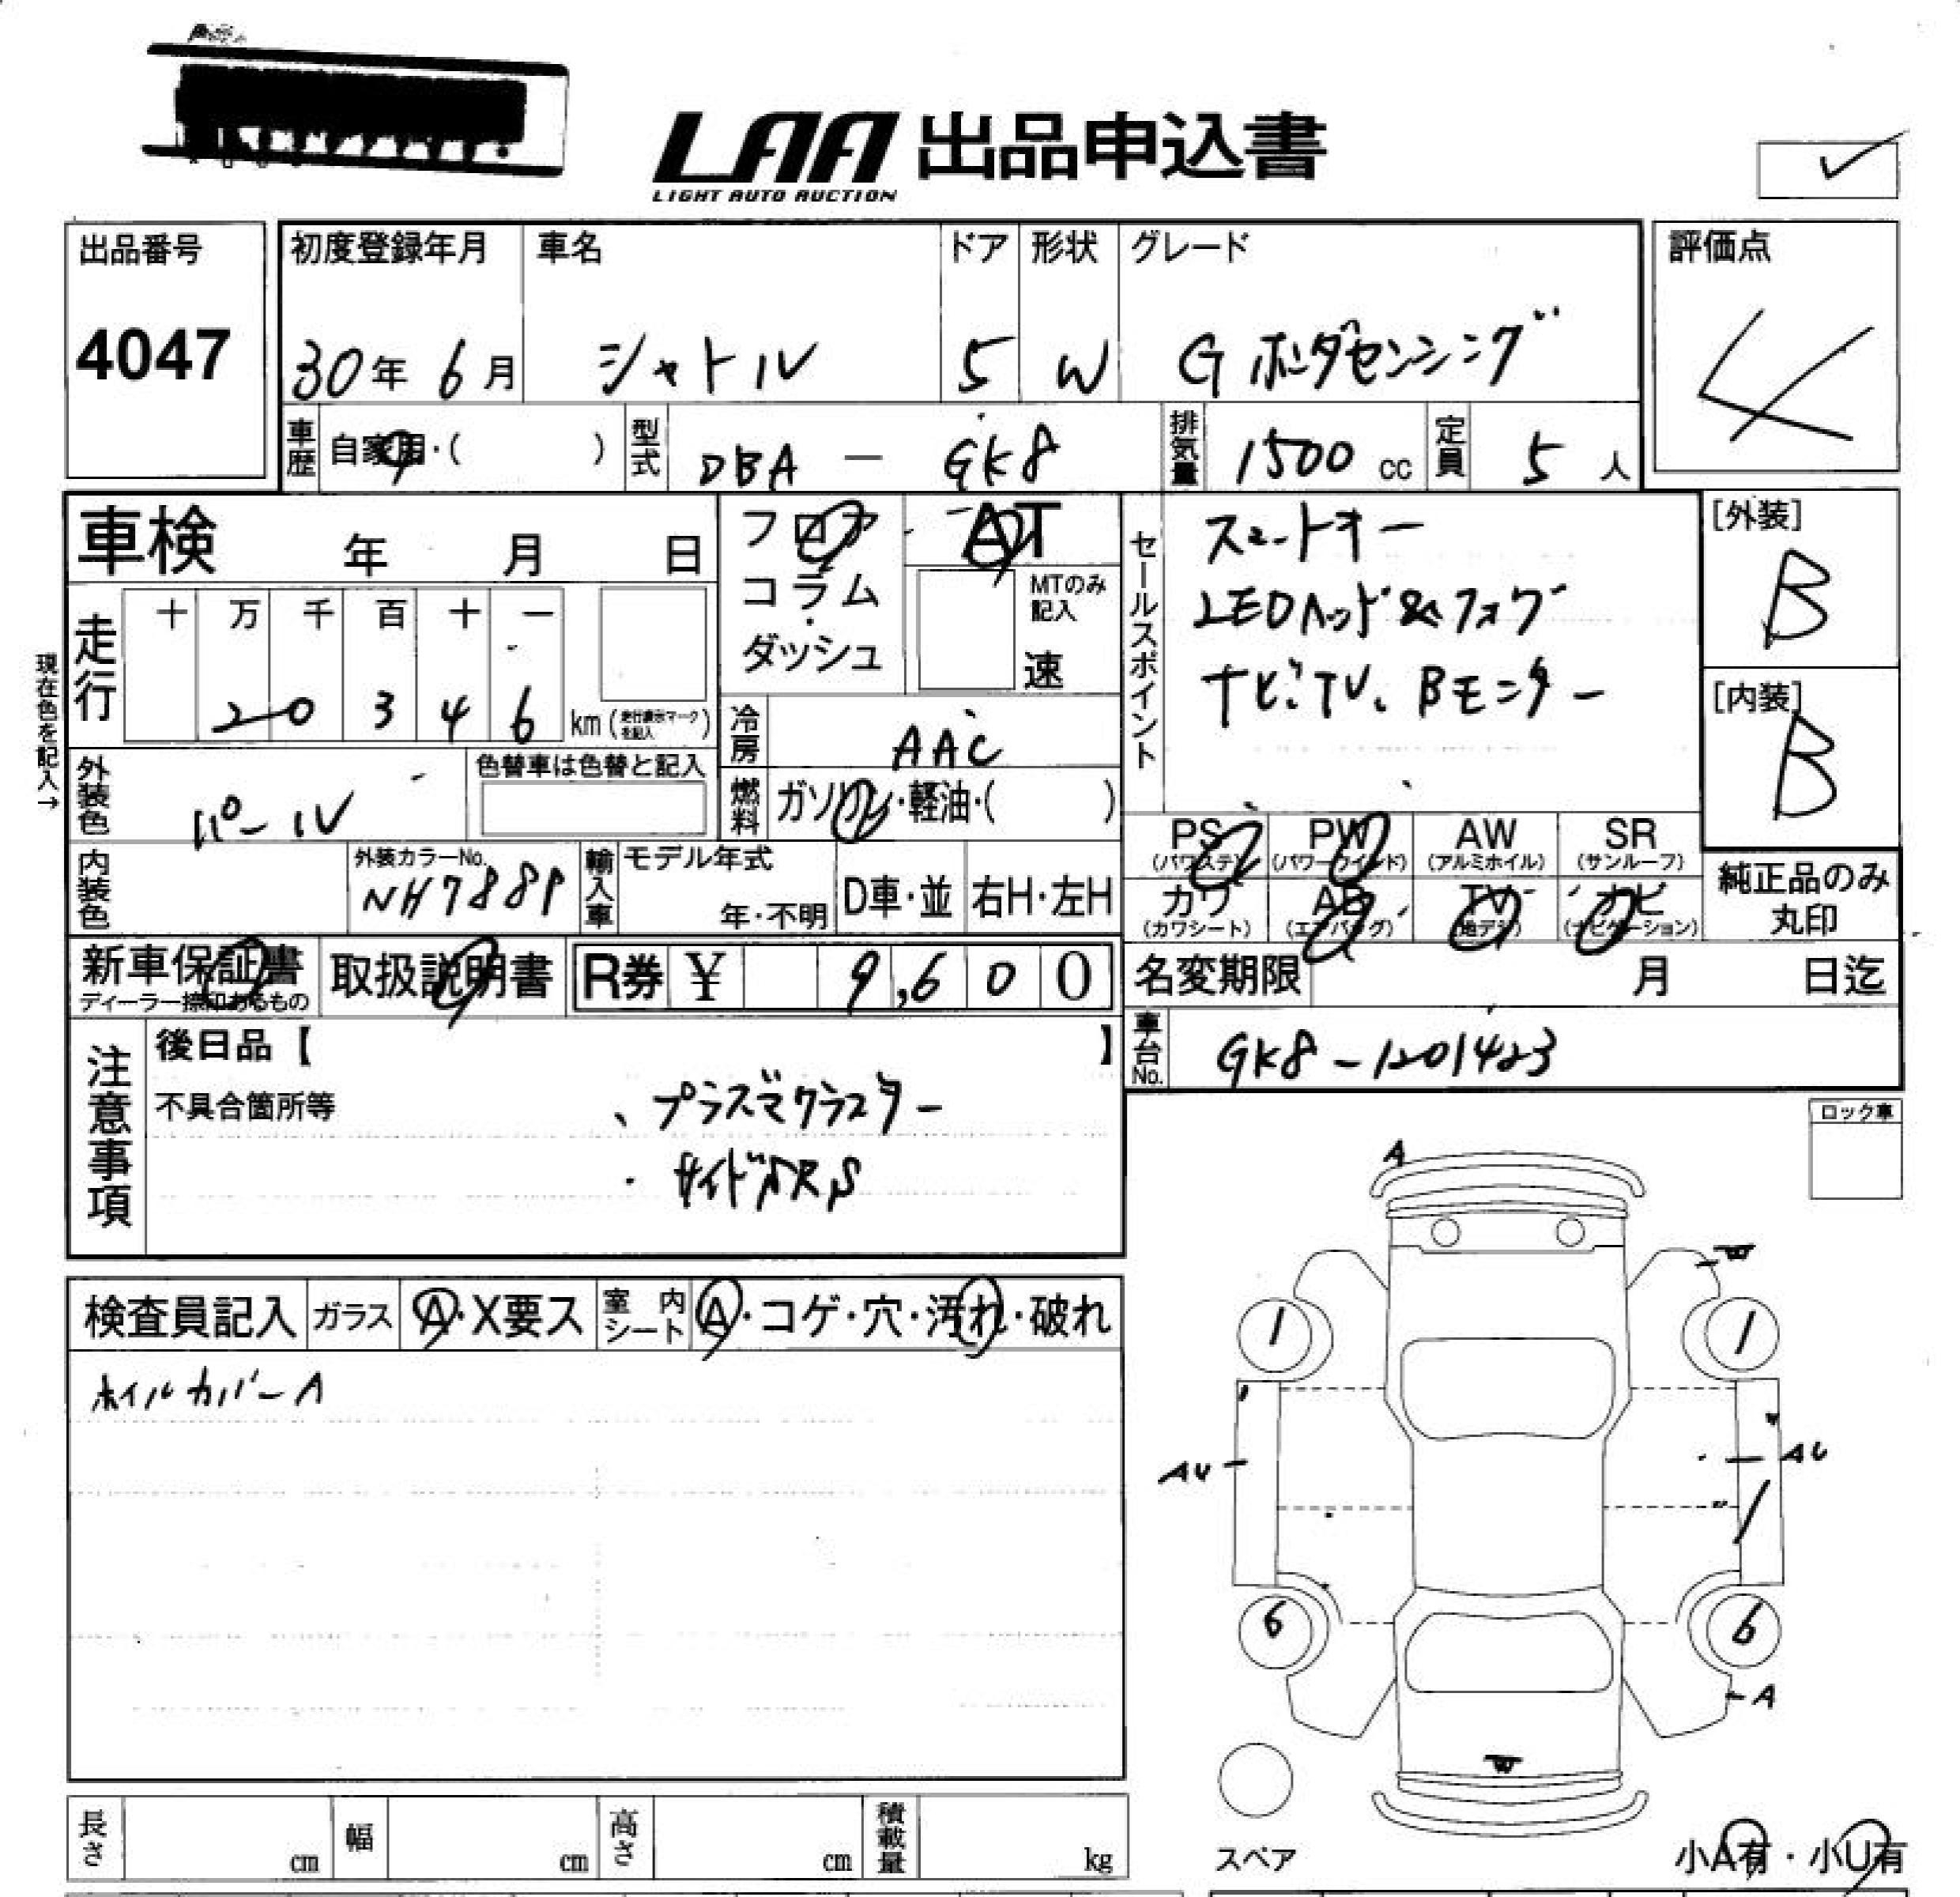 LAA 出品申込書
LIGHT AUTO AUCTION
出品番号
4047
初度登録年月
30年 6月
車名
シャトル
ドア
5
形状
W
グレード
G ホンダセンシング
評価点
4
車歴 自家用・( )
型式 DBA — GK8
排気量 1500 cc
定員 5 人
車検 年 月 日
現在色を記入→
走行 十 万 千 百 十 一
2 0 3 4 6 km (走行表示マークを記入)
外装色 パール
色替車は色替と記入
内装色
外装カラーNo.
NH788P
輸入車 モデル年式
年・不明
D車・並
右H・左H
フロア
コラム
・
ダッシュ
AT
MTのみ
記入
速
冷房 AAC
燃料 ガソリン・軽油・( )
セールスポイント
スマートキー
LEDヘッド&フォグ
ナビ、TV、Bモニター
[外装]
B
[内装]
B
PS
(パワステ)
PW
(パワーウインド)
AW
(アルミホイル)
SR
(サンルーフ)
カワ
(カワシート)
AB
(エアバッグ)
TV
(地デジ)
ナビ
(ナビゲーション)
純正品のみ
丸印
新車保証書
ディーラー捺印あるもの
取扱説明書
R券 ¥ 9,600
名変期限 月 日迄
車台No. GK8-1201423
注意事項
後日品【 】
不具合箇所等
、プラズマクラスター
・サイドSRS
ロック車
検査員記入
ガラス A・X要ス
室内シート A・コゲ・穴・汚れ・破れ
ホイルカバーA
A
W
1
1
AU
AU
6
6
A
W
スペア
小A有・小U有
長さ cm
幅 cm
高さ cm
積載量 kg